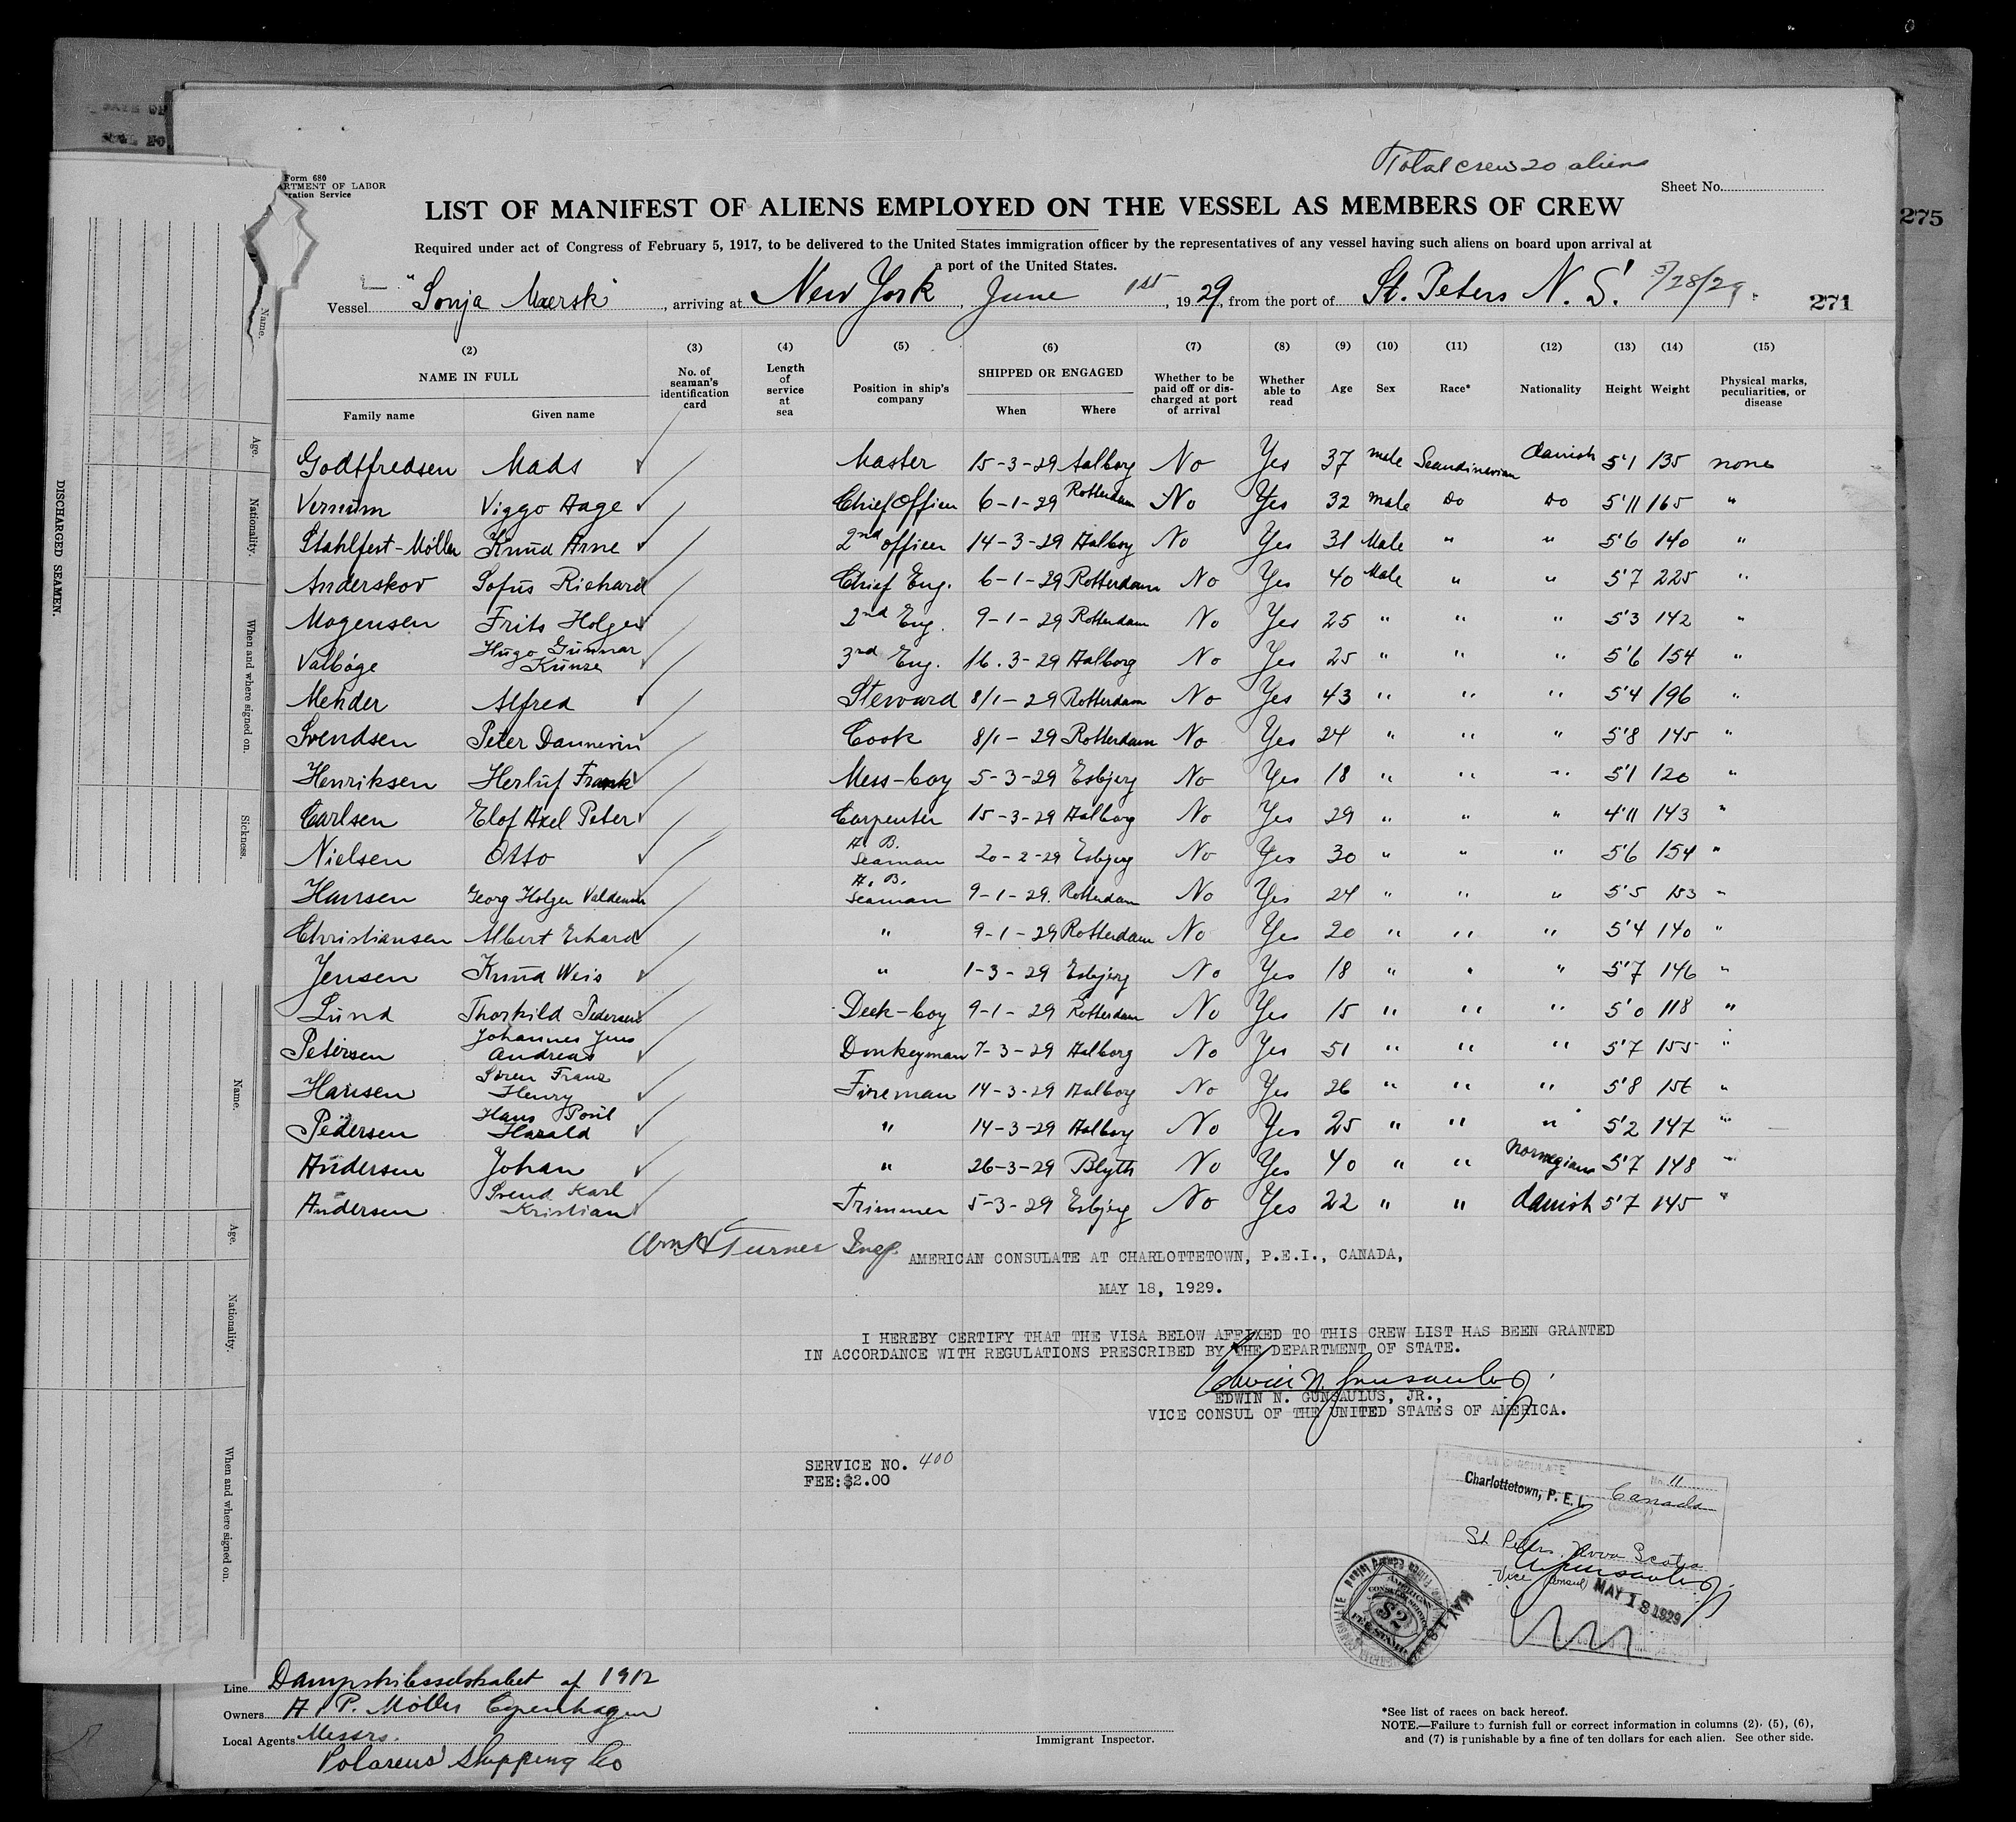 Total crew 20 aliens
Form 680
ARTMENT OF LABOR
ration Service
Sheet No.
LIST OF MANIFEST OF ALIENS EMPLOYED ON THE VESSEL AS MEMBERS OF CREW
275
Required under act of Congress of February 5, 1917, to be delivered to the United States immigration officer by the representatives of any vessel having such aliens on board upon arrival at
a port of the United States.
Vessel "Sonja Maersk", arriving at New York, June 1st, 1929, from the port of St. Peters N. S. 5/28/29.
271
(2) (3) (4) (5) (6) (7) (8) (9) (10) (11) (12) (13) (14) (15)
NAME IN FULL No. of seaman's identification card Length of service at sea Position in ship's company SHIPPED OR ENGAGED Whether to be paid off or discharged at port of arrival Whether able to read Age Sex Race* Nationality Height Weight Physical marks, peculiarities, or disease
Family name Given name When Where
Godtfredsen Mads Master 15-3-29 Aalborg No Yes 37 male Scandinavian danish 5'1 135 none
Viggo Aage Chief Officer 6-1-29 Rotterdam No Yes 32 male Do Do 5'11 165 "
Stahlfest-Möller Knud Arne 2nd officer 14-3-29 Aalborg No Yes 31 Male " " 5'6 140 "
Anderskov Sofus Richard Chief Eng. 6-1-29 Rotterdam No Yes 40 Male " " 5'7 225 "
Mogensen Frits Holger 2nd Eng. 9-1-29 Rotterdam No Yes 25 " " " 5'3 142 "
Valbøge Hugo Gunnar Kunze 3rd Eng. 16.3-29 Aalborg No Yes 25 " " " 5'6 154 "
Mehder Alfred Steward 8/1-29 Rotterdam No Yes 43 " " " 5'4 196 "
Svendsen Peter Cook 8/1-29 Rotterdam No Yes 24 " " " 5'8 145 "
Henriksen Herluf Frank Mess-boy 5-3-29 Esbjerg No Yes 18 " " " 5'1 120 "
Carlsen Elof Axel Peter Carpenter 15-3-29 Aalborg No Yes 29 " " " 4'11 143 "
Nielsen Otto A. B. Seaman 20-2-29 Esbjerg No Yes 30 " " " 5'6 154 "
Hansen Georg Holger Valdemar A. B. Seaman 9-1-29. Rotterdam No Yes 24 " " " 5'5 153 "
Christiansen Albert Erhard " 9-1-29 Rotterdam No Yes 20 " " " 5'4 140 "
Jensen Knud Weis " 1-3-29 Esbjerg No Yes 18 " " " 5'7 146 "
Lund Thorkild Pedersen Deck-boy 9-1-29 Rotterdam No Yes 15 " " " 5'0 118 "
Petersen Johannes Jens Andreas Donkeyman 7-3-29 Aalborg No Yes 51 " " " 5'7 155 "
Hansen Sören Franz Henry Fireman 14-3-29 Aalborg No Yes 26 " " " 5'8 156 "
Pedersen Hans Poul Harald " 14-3-29 Aalborg No Yes 25 " " " 5'2 147 "
Andersen Johan " 26-3-29 Blyth No Yes 40 " " norwegian 5'7 148 "
Andersen Svend Karl Kristian Trimmer 5-3-29 Esbjerg No Yes 22 " " danish 5'7 145 "
Wm H Turner Insp.
AMERICAN CONSULATE AT CHARLOTTETOWN, P.E.I., CANADA,
MAY 18, 1929.
I HEREBY CERTIFY THAT THE VISA BELOW AFFIXED TO THIS CREW LIST HAS BEEN GRANTED
IN ACCORDANCE WITH REGULATIONS PRESCRIBED BY THE DEPARTMENT OF STATE.
Edwin N. Gunsaulus Jr.
EDWIN N. GUNSAULUS, JR.,
VICE CONSUL OF THE UNITED STATES OF AMERICA.
SERVICE NO. 400
FEE:$2.00
No. 11
Charlottetown, P. E. I. Canada
St Peters, Nova Scotia
Vice Consul
MAY 18 1929
AMERICAN
CONSULAR SERVICE
$2
FEE STAMP
MAY 18
Line Dampskibsselskabet af 1912
Owners A. P. Möller Copenhagen
Local Agents Messrs.
Shipping Co
Immigrant Inspector.
*See list of races on back hereof.
NOTE.—Failure to furnish full or correct information in columns (2), (5), (6),
and (7) is punishable by a fine of ten dollars for each alien. See other side.
DISCHARGED SEAMEN.
Name.
Age.
Nationality.
When and where signed on.
Sickness.
Name.
Age.
Nationality.
When and where signed on.